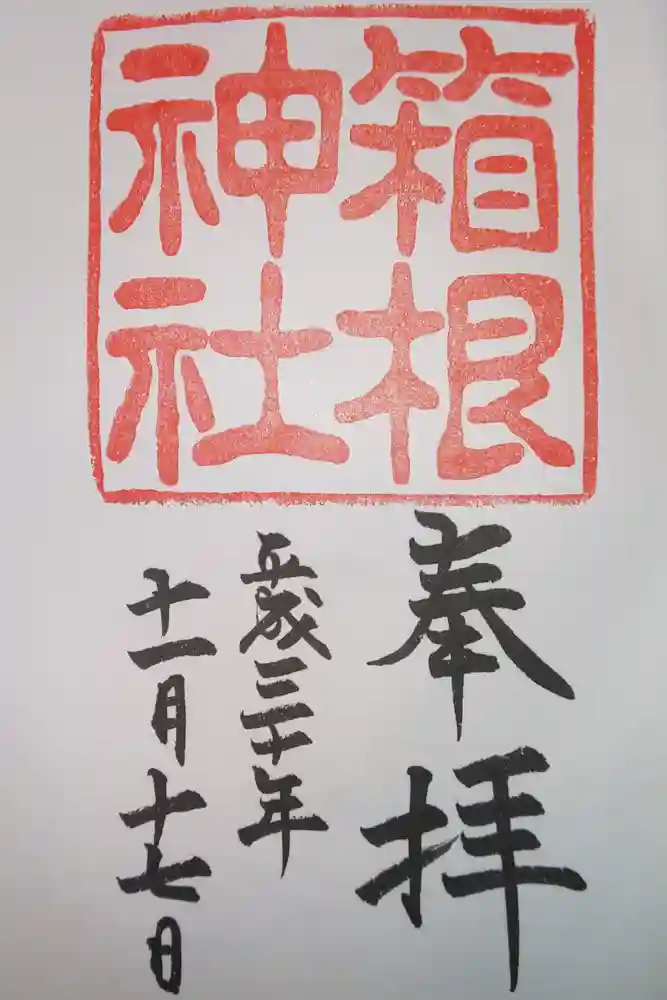 箱根
神社
奉拝
平成三十年
十一月十七日